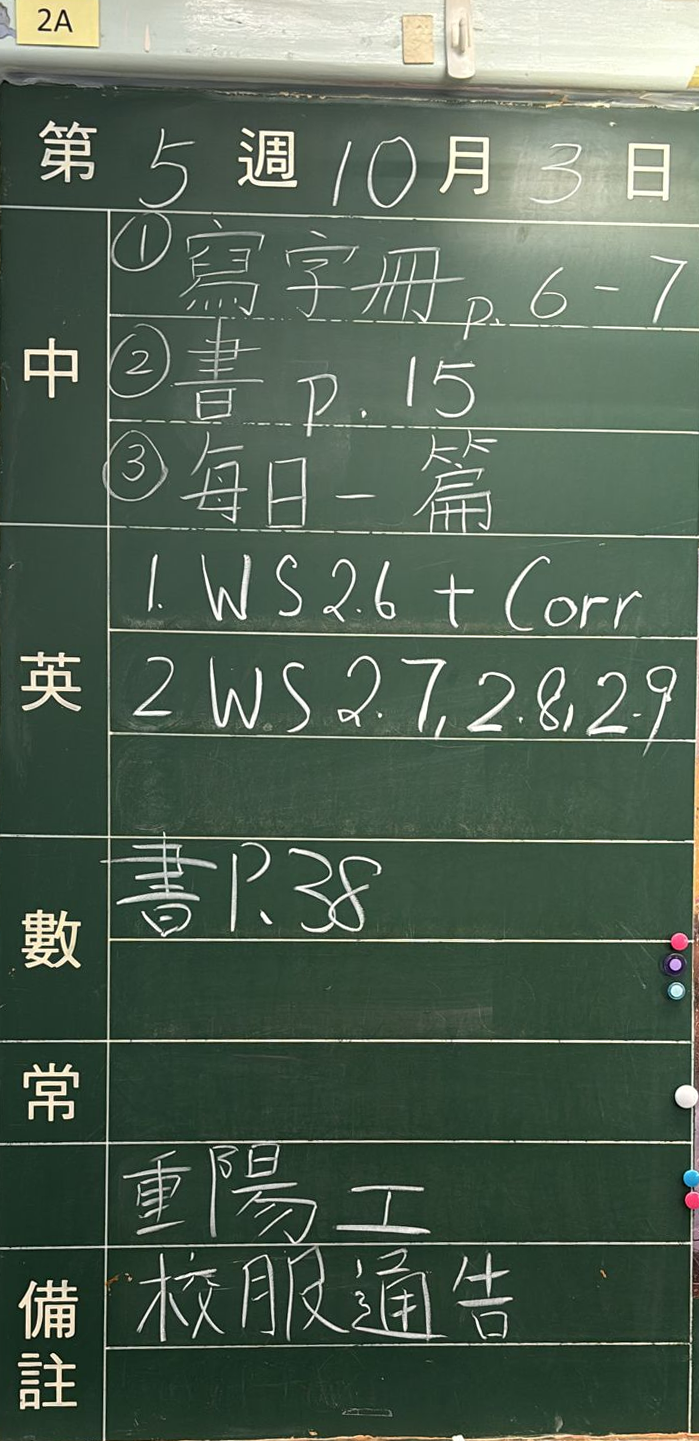 2A
第 5 週 10 月 3 日
中
① 寫字冊 p. 6-7
② 書 p. 15
③ 每日一篇
英
1. WS 2.6 + Corr
2 WS 2.7, 2.8, 2.9
數
書 P. 38
常
重陽工
備註
校服通告